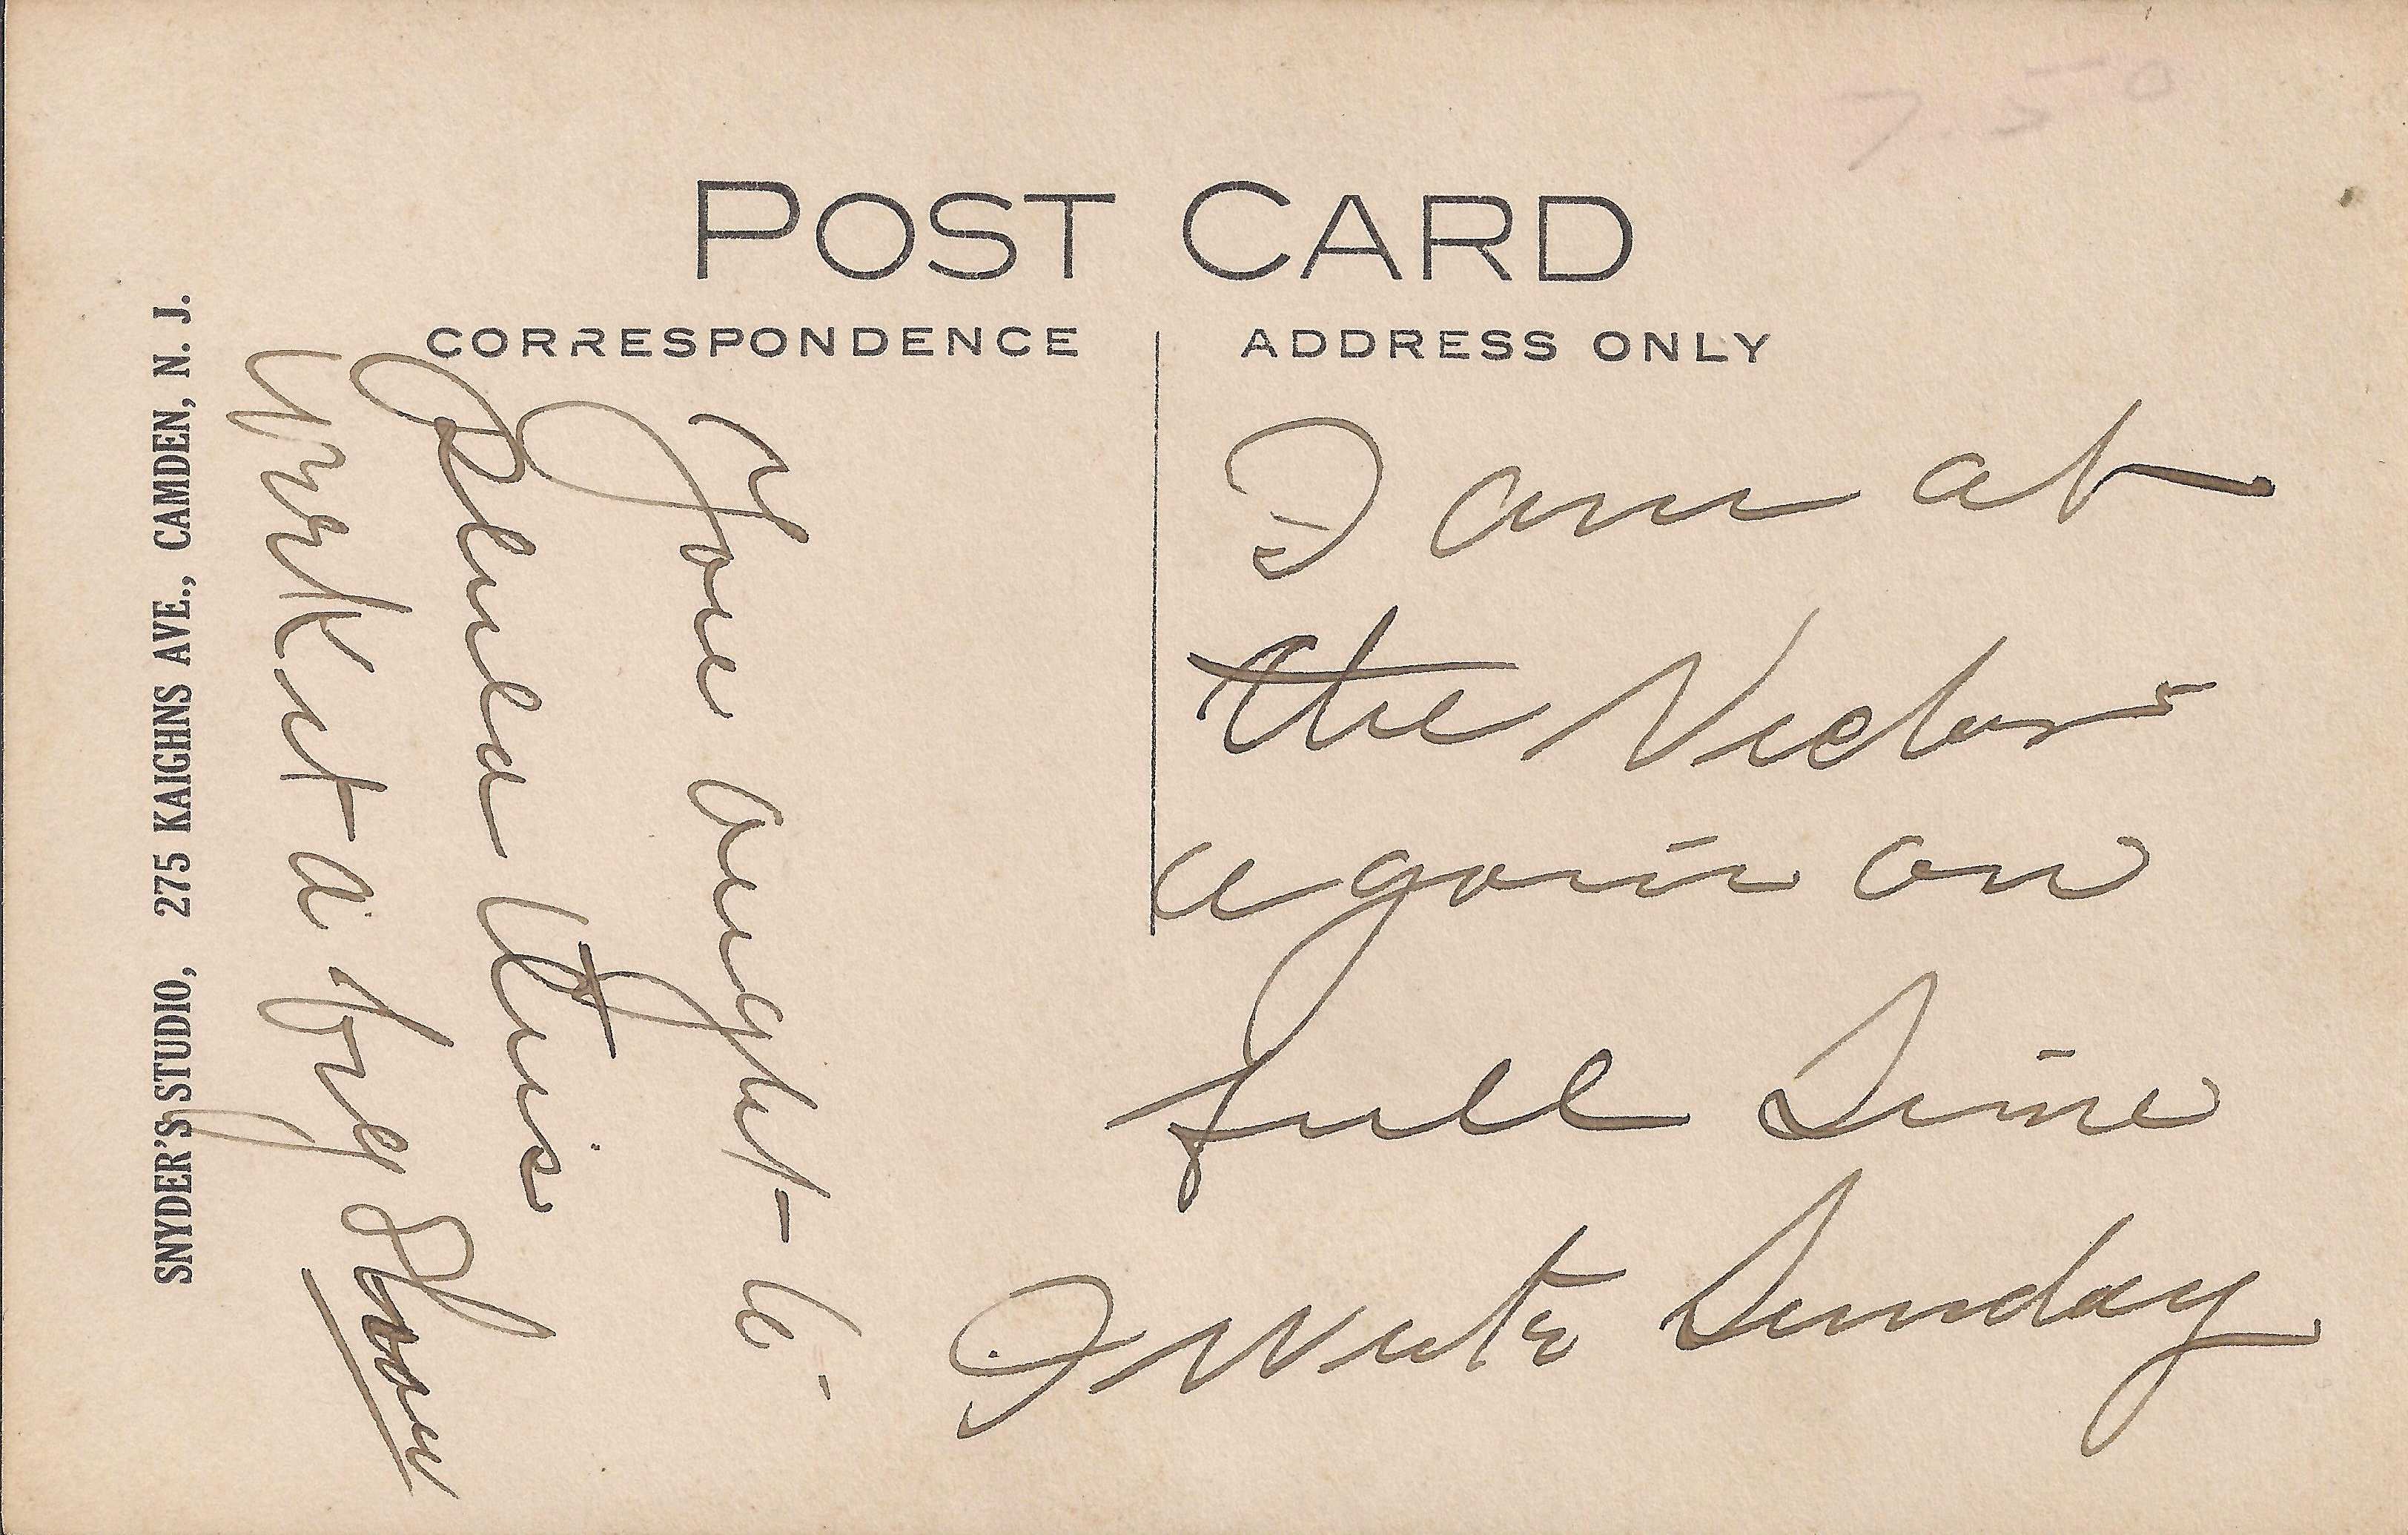 7.50
POST CARD
CORRESPONDENCE
ADDRESS ONLY
SNYDER'S STUDIO, 275 KAIGHNS AVE., CAMDEN, N. J.
You aught to
this
a Show
I am at
the Victor
again on
full Time
I write Sunday